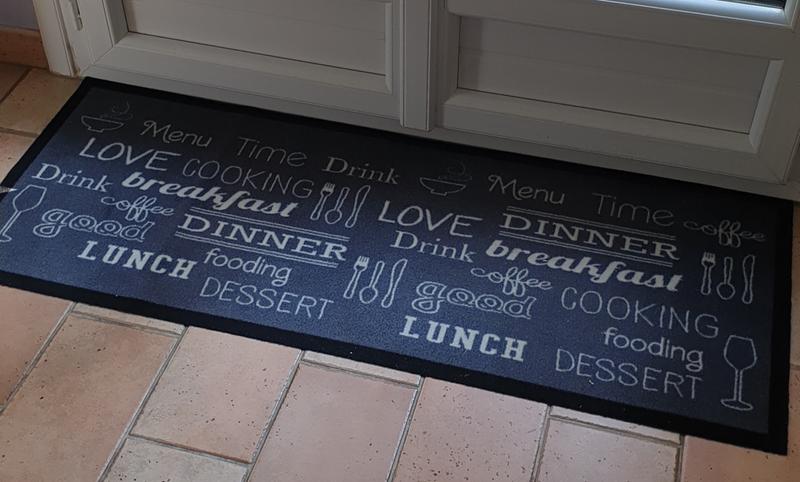 Menu Time Drink Menu Time coffee
LOVE COOKING LOVE DINNER
Drink breakfast Drink breakfast
coffee coffee
good DINNER good COOKING
LUNCH fooding LUNCH fooding
DESSERT DESSERT